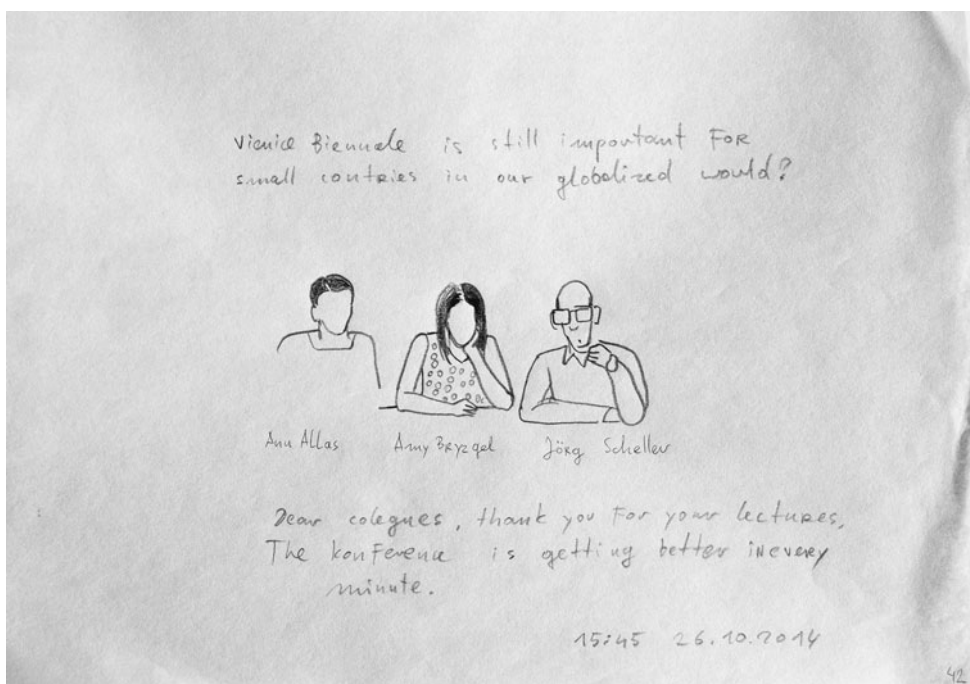 Vienice Biennale is still important FOR
small contries in our globalized would?
Ann Allas
Amy Bryzgel
Jörg Scheller
Dear colegues, thank you For your lectures,
The konFerence is getting better in every
minute.
15:45 26.10.2014
42